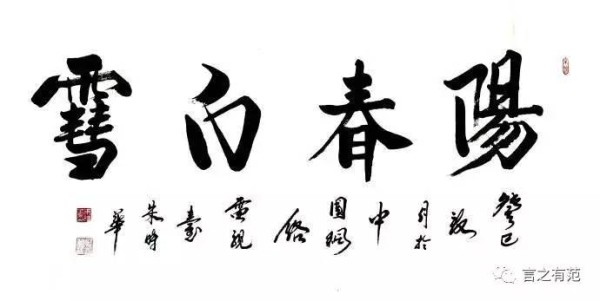 陽春白䨮
癸巳
秋
月於
中
國網
絡
電視
臺
朱時
華
言之有范